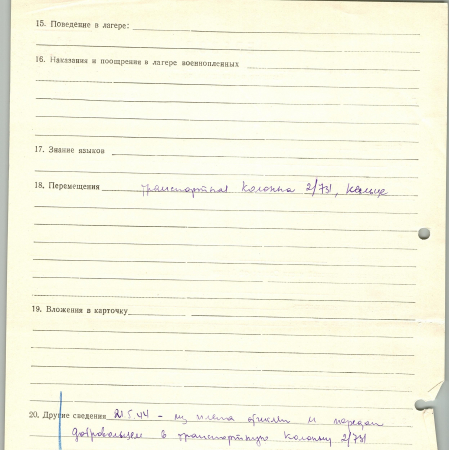 15. Поведение в лагере:
16. Наказания и поощрение в лагере военнопленных
17. Знание языков
18. Перемещения транспортная колонна 2/731, Кельце
19. Вложения в карточку
20. Другие сведения 21.5.44 - из плена и передан
добровольцем в транспортную колонну 2/731